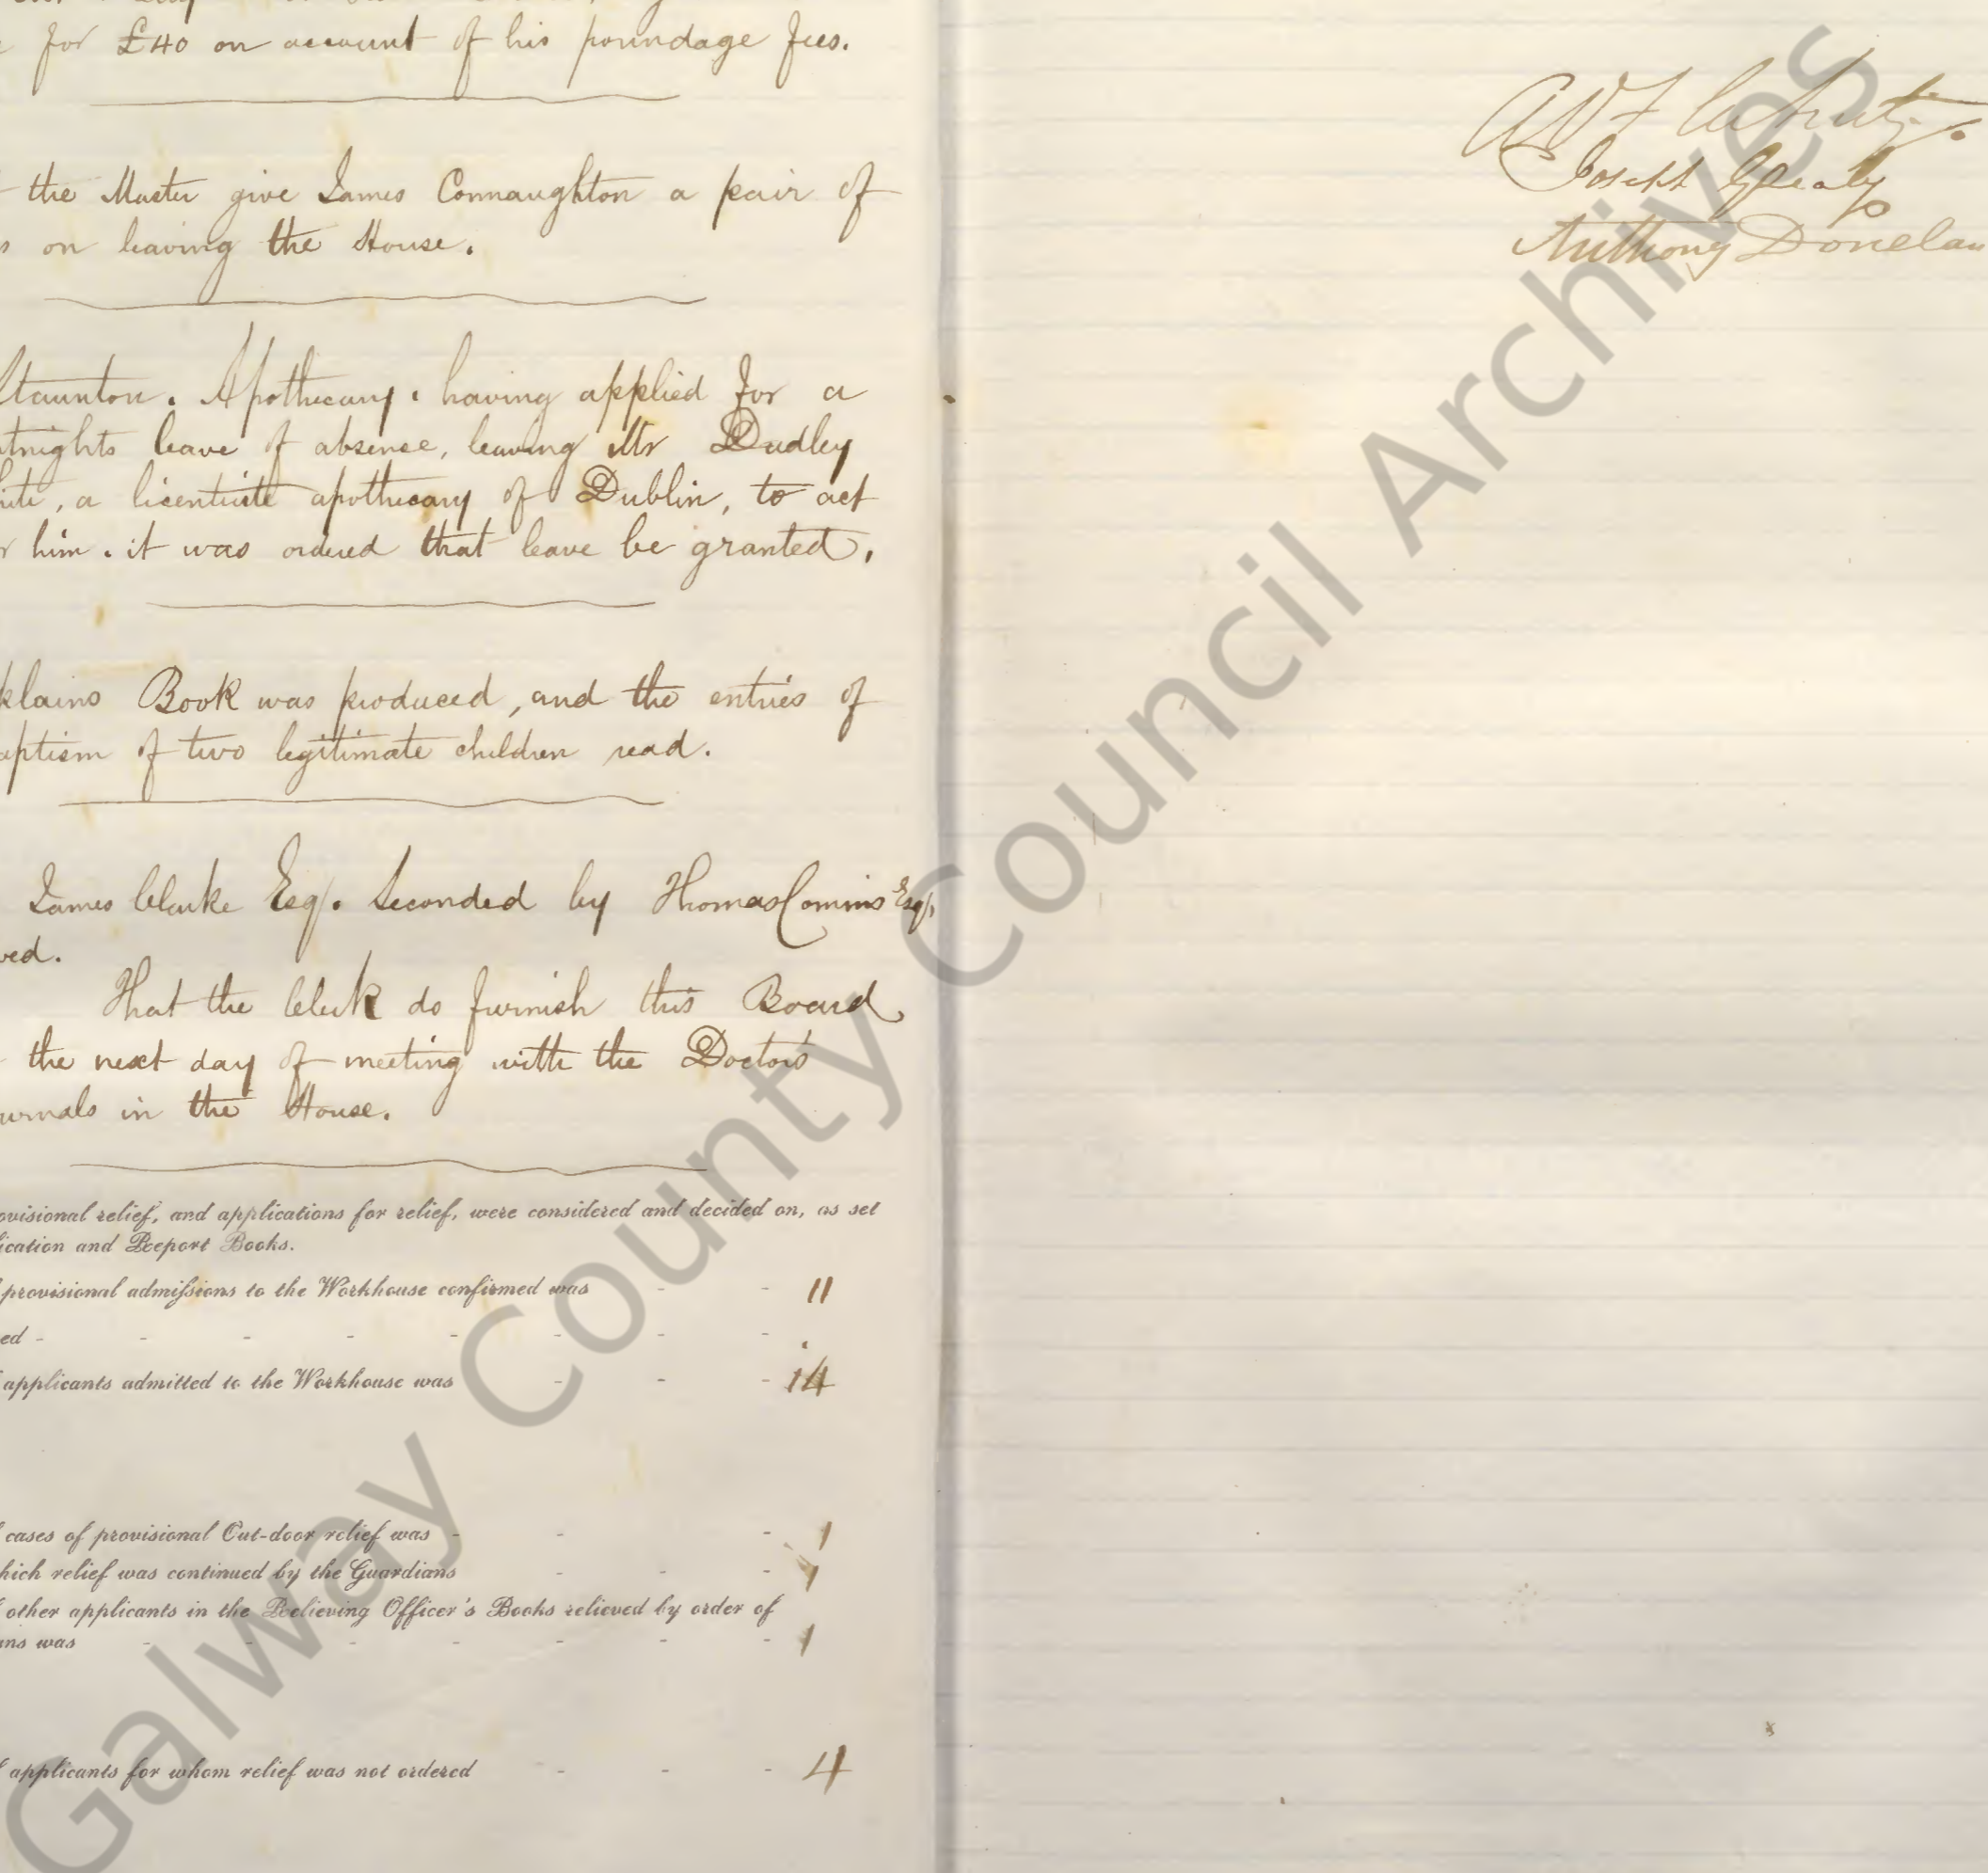 for £40 on account of his poundage fees.
the Master give James Connaughton a pair of
on leaving the House.
Staunton. Apothecary. having applied for a
tnights leave of absence, leaving Mr Dudley
hite, a licentiate apothecary of Dublin, to act
r him. it was ordered that leave be granted.
plains Book was produced, and the entries of
aptism of two legitimate children read.
James Clarke Esq. Seconded by Thomas Commins Esq.
ved.
That the Clerk do furnish this Board
the next day of meeting with the Doctors
urnals in the House.
ovisional relief, and applications for relief, were considered and decided on, as set
lication and Report Books.
provisional admissions to the Workhouse confirmed was - - 11
ed - - - - - - - -
applicants admitted to the Workhouse was - - - 14
cases of provisional Out-door relief was - - - 1
hich relief was continued by the Guardians - - - 1
other applicants in the Relieving Officer's Books relieved by order of
ans was - - - - - - - 1
applicants for whom relief was not ordered - - - 4
Joseph Glealy
Anthony Donelan
Galway County Council Archives